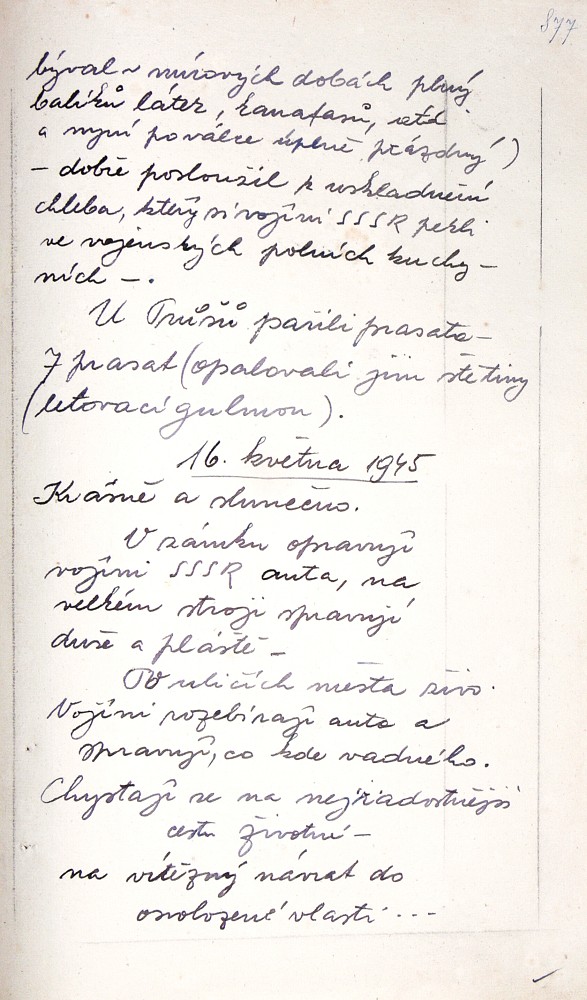 877
býval v mírových dobách plný
balíků látek, kanafasů, atd
a nyní po válce úplně prázdný)
– dobře posloužil k uskladnění
chleba, který si vojíni SSSR pekli
ve vojenských polních kuchy–
ních –.
U Trůšů pařili prasata–
7 prasat (opalovali jim štětiny
(letovací gulmou).
16. května 1945
Krásně a slunečno.
V zámku opravují
vojíni SSSR auta, na
velkém stroji spravují
duše a pláště –
Po ulicích města živo.
Vojíni rozebírají auta a
spravují, co kde vadného.
Chystají se na nejradostnější
cestu životní –
na vítězný návrat do
osvobozené vlasti ...